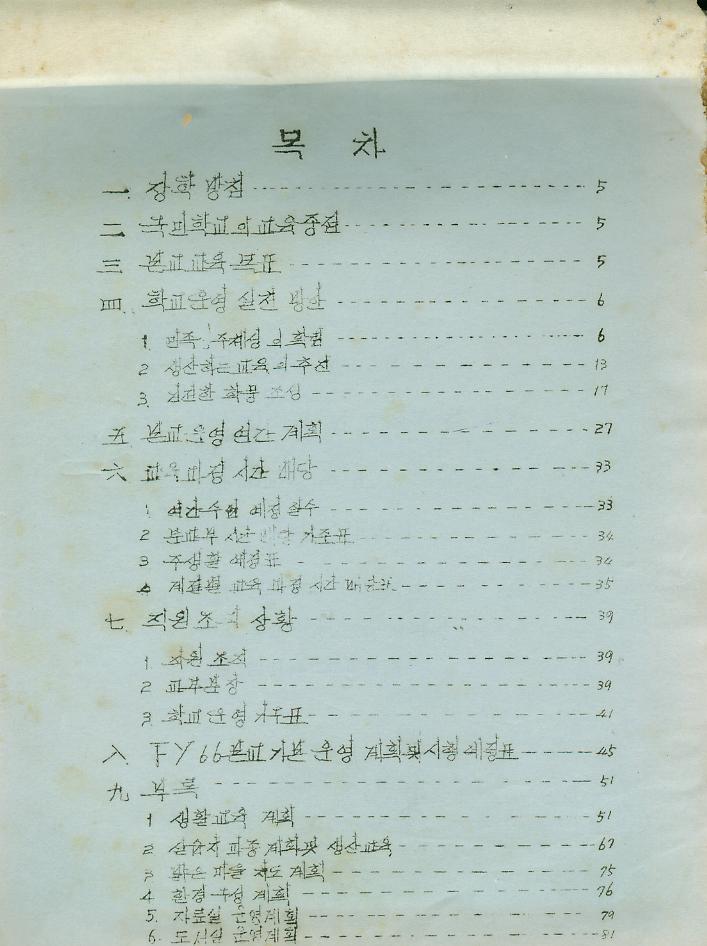 목 차
一. 장학 방침 5
二. 국민학교의 교육중점 5
三. 본교교육 목표 5
四. 학교운영 실천 방안 6
1. 민족 주체성의 확립 6
2 생산하는 교육의 추진 13
3. 건전한 학풍 조성 17
五. 본교 운영 연간 계획 27
六. 교육과정 시간 배당 33
1 연간 수업 예정 일수 33
2 분교부 시간 배당 기준표 34
3 주생활 예정표 34
4 계절별 교육 과정 시간 35
七. 직원 조직 상황 39
1 직원 조직 39
2 교무분장 39
3 학교 운영 기구표 41
八. 66 본교 기본 운영 계획 및 시행 예정표 45
九. 부록 51
1 생활교육 계획 51
2 실습지 파종 계획 및 생산교육 67
3 밝은 마을 지도 계획 75
4 환경 구성 계획 76
5. 자료실 운영계획 79
6. 도서실 운영계획 81